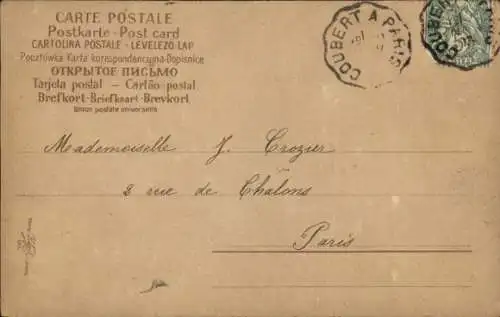 CARTE POSTALE
Postkarte - Post card
CARTOLINA POSTALE - LEVELEZŐ-LAP
Pocztówka Karta korespondencyjna-Dopisnice
ОТКРЫТОЕ ПИСЬМО
Tarjeta postal - Cartão postal
Brefkort-Briefkaart-Brevkort
Union postale universelle
COUBERT A PARIS
Mademoiselle J. Crozier
2 rue de Châlons
Paris